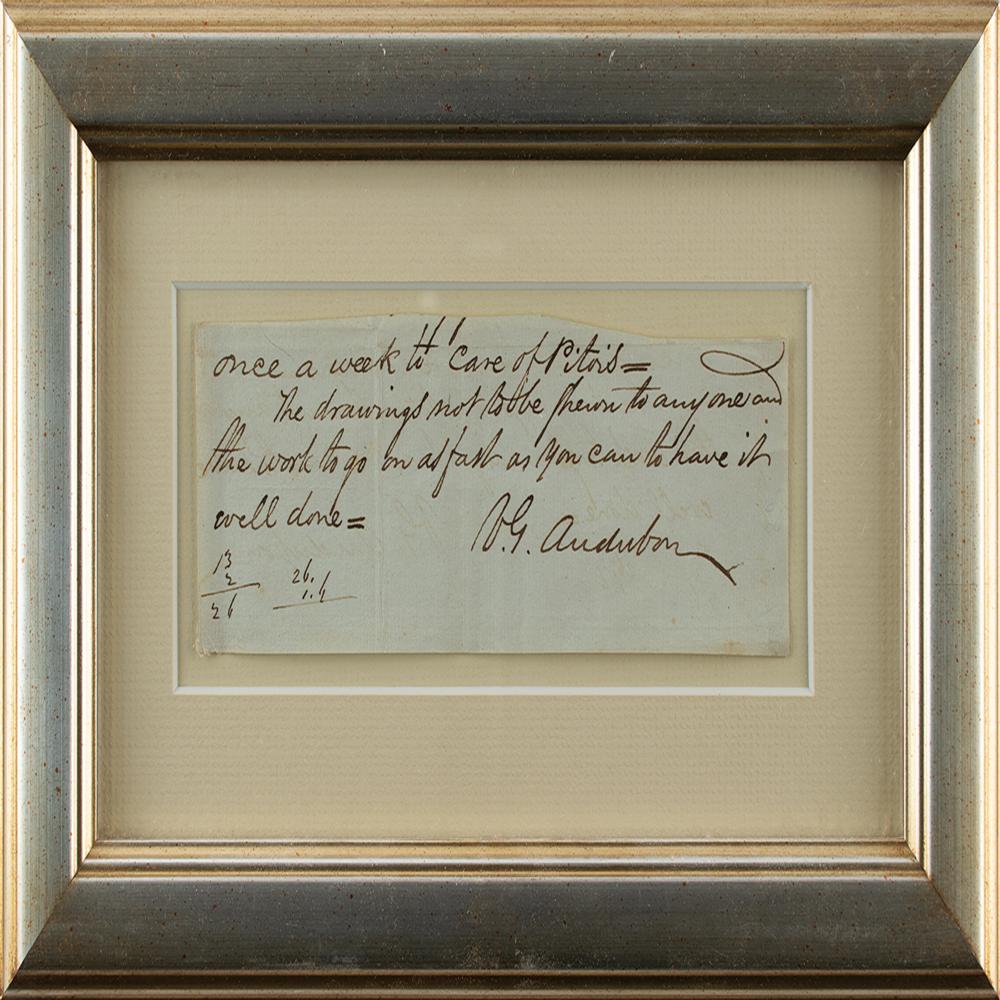 once a week to Care of Pitois=
The drawings not to be shewn to any one and
the work to go on as fast as you can to have it
well done=
V.G. Audubon
13
2
26
26.
1.6